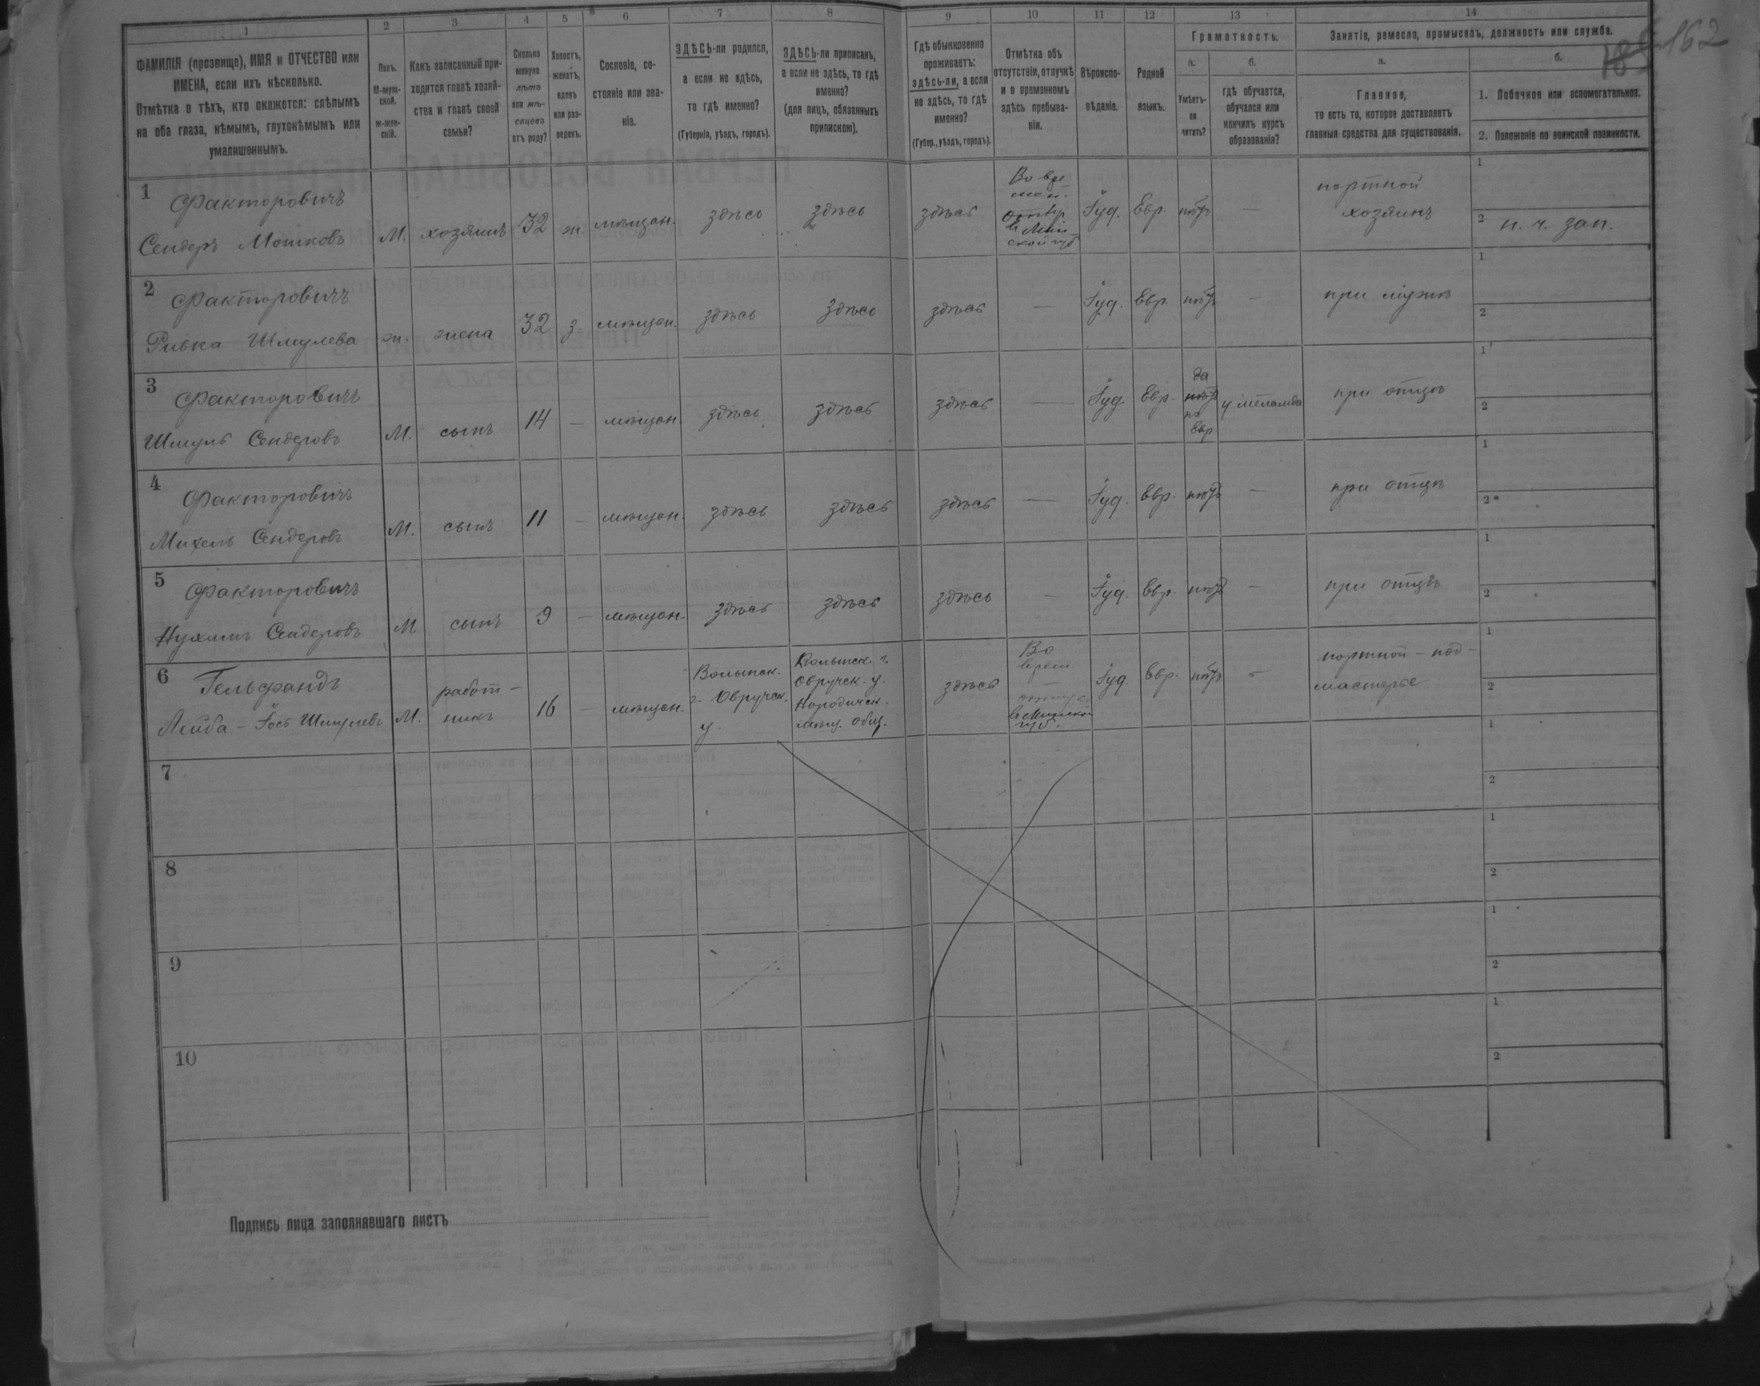 185 162
1 2 3 4 5 6 7 8 9 10 11 12 13 14
ФАМИЛІЯ (прозвище), ИМЯ и ОТЧЕСТВО или
ИМЕНА, если ихъ нѣсколько.
Отмѣтка о тѣхъ, кто окажется: слѣпымъ
на оба глаза, нѣмымъ, глухонѣмымъ или
умалишеннымъ.
Полъ.
М-муж-
ской.
Ж-жен-
скій.
Какъ записанный при-
ходится главѣ хозяй-
ства и главѣ своей
семьи?
Сколько
минуло
лѣтъ
или мѣ-
сяцевъ
отъ роду?
Холостъ,
женатъ,
вдовъ
или раз-
веденъ.
Сословіе, со-
стояніе или зва-
ніе.
ЗДѢСЬ-ли родился,
а если не здѣсь,
то гдѣ именно?
(Губернія, уѣздъ, городъ).
ЗДѢСЬ-ли приписанъ,
а если не здѣсь, то гдѣ
именно?
(для лицъ, обязанныхъ
припискою).
Гдѣ обыкновенно
проживаетъ:
здѣсь-ли, а если
не здѣсь, то гдѣ
именно?
(Губер., уѣздъ, городъ).
Отмѣтка объ
отсутствіи, отлучкѣ
и о временномъ
здѣсь пребыва-
ніи.
Вѣроиспо-
вѣданіе.
Родной
языкъ.
Грамотность.
а.
Умѣетъ-
ли
читать?
б.
гдѣ обучается,
обучался или
кончилъ курсъ
образованія?
Занятіе, ремесло, промыселъ, должность или служба.
а.
Главное,
то есть то, которое доставляетъ
главныя средства для существованія.
б.
1. Побочное или вспомогательное.
2. Положеніе по воинской повинности.
1 Факторовичъ
Сендеръ Мошковъ М. хозяинъ 32 ж. мѣщан. здѣсь здѣсь здѣсь Іуд. Евр. нѣтъ — портной
хозяинъ 1
2 н. ч. зап.
2 Факторовичъ
Ривка Шмулева ж. жена 32 з. мѣщан. здѣсь здѣсь здѣсь — Іуд. Евр. нѣтъ — при мужѣ 1
2
3 Факторовичъ
Шмуль Сендеровъ М. сынъ 14 — мѣщан. здѣсь здѣсь здѣсь — Іуд. Евр. да
нѣтъ
по
Евр. у меламеда при отцѣ 1
2
4 Факторовичъ
Михель Сендеровъ М. сынъ 11 — мѣщан. здѣсь здѣсь здѣсь — Іуд. Евр. нѣтъ — при отцѣ 1
2
5 Факторовичъ
Нухимъ Сендеровъ М сынъ 9 — мѣщан. здѣсь здѣсь здѣсь — Іуд. Евр. нѣтъ — при отцѣ 1
2
6 Гельфандъ
Лейба-Іось Шмулевъ М. работ-
никъ 16 — мѣщан. Волынск.
г. Овручск.
у. Волынск. г.
Овручск. у.
Народичск.
мѣщ. общ. здѣсь Іуд. Евр. нѣтъ — портной-под-
мастерье 1
2
7 1
2
8 1
2
9 1
2
10 1
2
Подпись лица заполнявшаго листъ